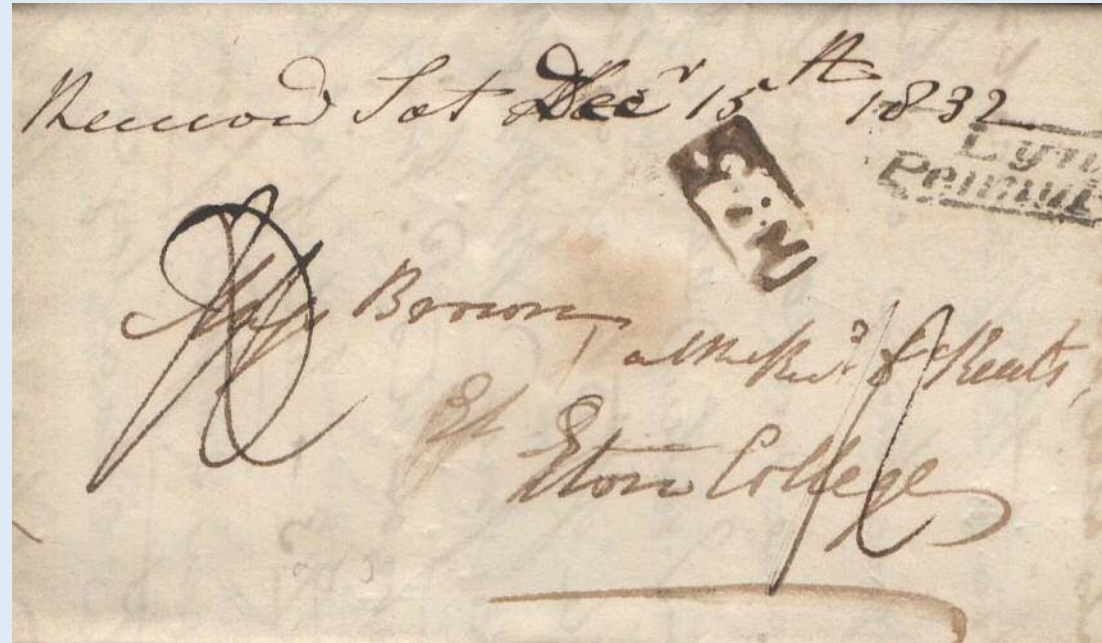 Sat Decr 15th 1832
Lyn
Penny
Miss Brown
at the Revd J Keats,
Eton College